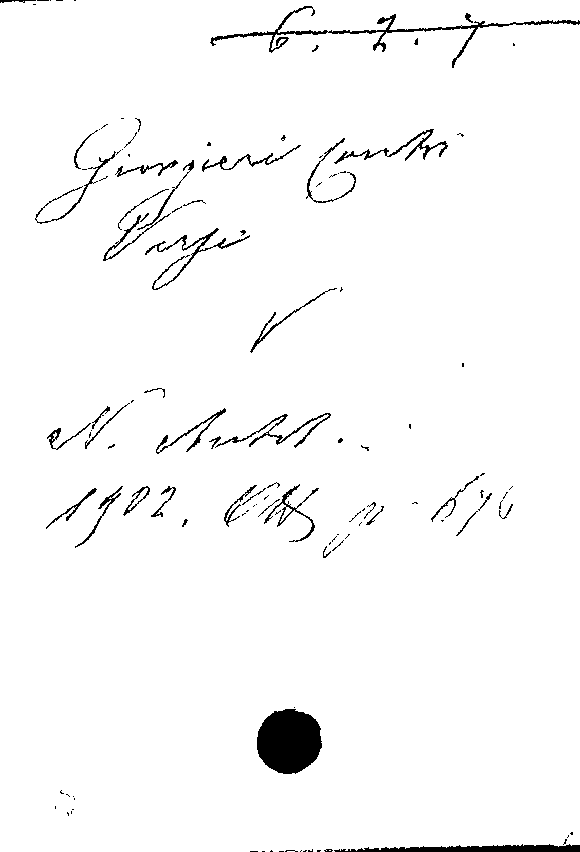 6. 2. 7.
Giorgieri Contri
Versi
V
N. Antol.
1902. Ott p. 576